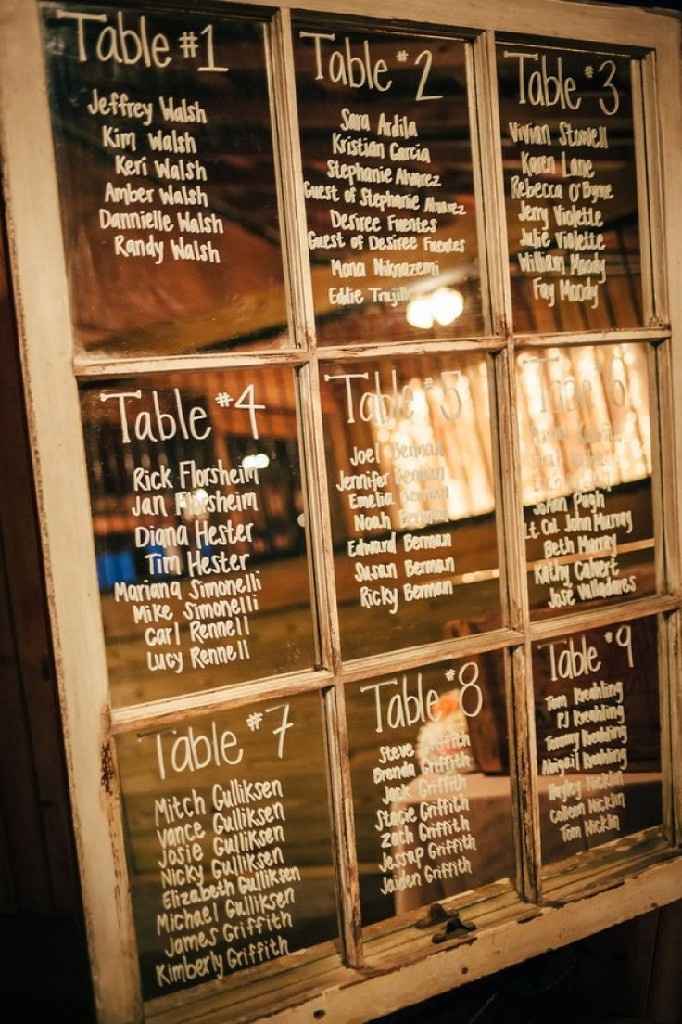 Table #1
Jeffrey Walsh
Kim Walsh
Keri Walsh
Amber Walsh
Dannielle Walsh
Randy Walsh
Table #2
Sara Ardila
Kristian Garcia
Stephanie Alvarez
Guest of Stephanie Alvarez
Desiree Fuentes
Guest of Desiree Fuentes
Mona Niknazemi
Eddie Trujillo
Table #3
Vivian Stowell
Karen Lane
Rebecca O'Byrne
Jerry Violette
Julie Violette
William Moody
Fay Moody
Table #4
Rick Florsheim
Jan Florsheim
Diana Hester
Tim Hester
Mariana Simonelli
Mike Simonelli
Carl Rennell
Lucy Rennell
Table #5
Joel Berman
Jennifer Berman
Emelia Berman
Noah Berman
Edward Berman
Susan Berman
Ricky Berman
Table #6
JoAnn Pugh
Lt Col John Murray
Beth Murray
Kathy Calvert
Jose Valladares
Table #7
Mitch Gulliksen
Vance Gulliksen
Josie Gulliksen
Nicky Gulliksen
Elizabeth Gulliksen
Michael Gulliksen
James Griffith
Kimberly Griffith
Table #8
Steve Griffith
Brenda Griffith
Jack Griffith
Stacie Griffith
Zach Griffith
Jessap Griffith
Jaiden Griffith
Table #9
Tom Keehling
PJ Keehling
Tommy Keehling
Abigail Keehling
Hayley Nicklin
Colleen Nicklin
Tom Nicklin